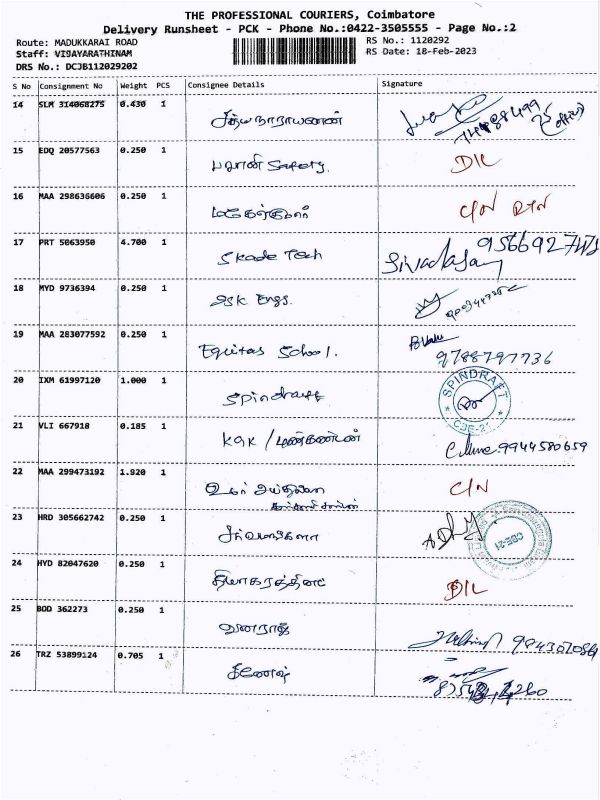 THE PROFESSIONAL COURIERS, Coimbatore
Delivery Runsheet - PCK - Phone No.:0422-3505555 - Page No.:2
Route: MADUKKARAI ROAD
Staff: VIJAYARATHINAM
DRS No.: DCJB112029202
RS No.: 1120292
RS Date: 18-Feb-2023
S No Consignment No Weight PCS Consignee Details Signature
14 SLM 314068275 0.430 1 சத்யநாராயணன்
15 EDQ 20577563 0.250 1 பவானி Safety. D/L
16 MAA 298636606 0.250 1 C/N RTN
17 PRT 5063950 4.700 1 Skade Tech
18 MYD 9736394 0.250 1 Engs.
19 MAA 283077592 0.250 1 Equitas School. 9788797736
20 IXM 61997120 1.000 1 Spindraft SPINDRAFT CBE-21
21 VLI 667918 0.185 1 KGK / 9944580659
22 MAA 299473192 1.920 1 C/N
23 HRD 305662742 0.250 1 CBE-21
24 HYD 82047620 0.250 1 தியாகரத்தினம் D/L
25 BOD 362273 0.250 1
26 TRZ 53899124 0.705 1 கணேஷ்